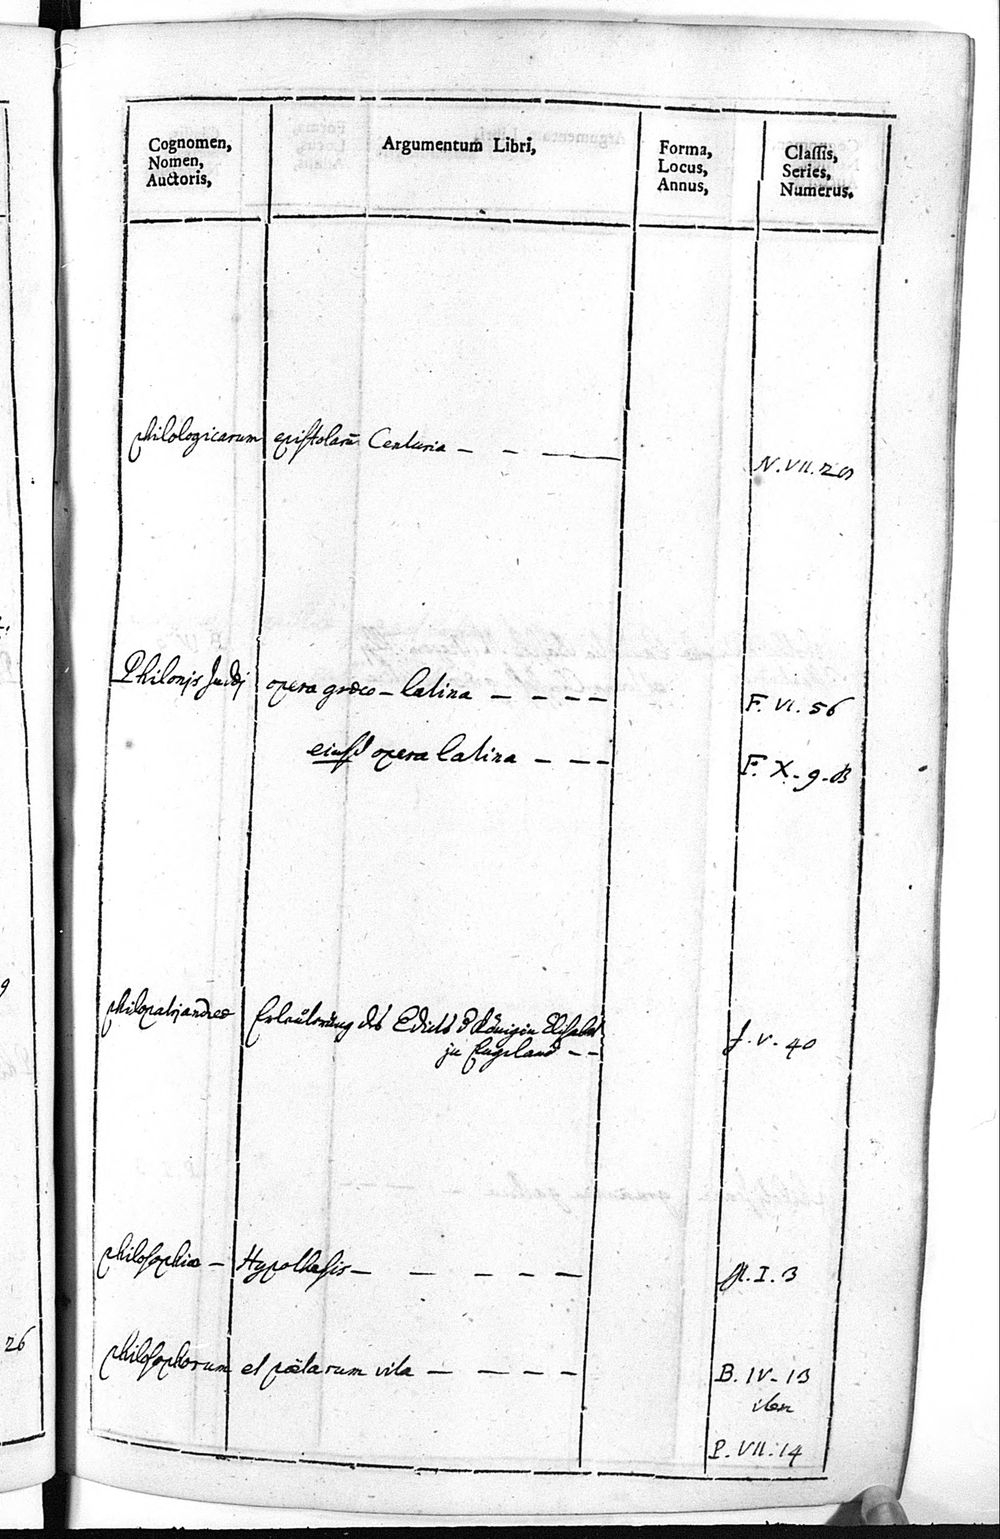 Cognomen,
Nomen,
Auctoris,
Argumentum Libri,
Forma,
Locus,
Annus,
Classis,
Series,
Numerus.
philologicarum epistolarū Centuria – – —
N. VII. 20
Philonis Judæi opera græco-latina – – – –
F. VI. 56
eiusd opera latina – – –
F. X. 9. B
Philopatri andreæ Erleüterung des Edicts d Königin Elisabet
zu Engeland – –
J. V. 40
philosophiæ – Hypothesis – – – – –
I. 3
philosophorum et pöetarum vita – – – –
B. IV. 13
item
P. VII. 14
26
9